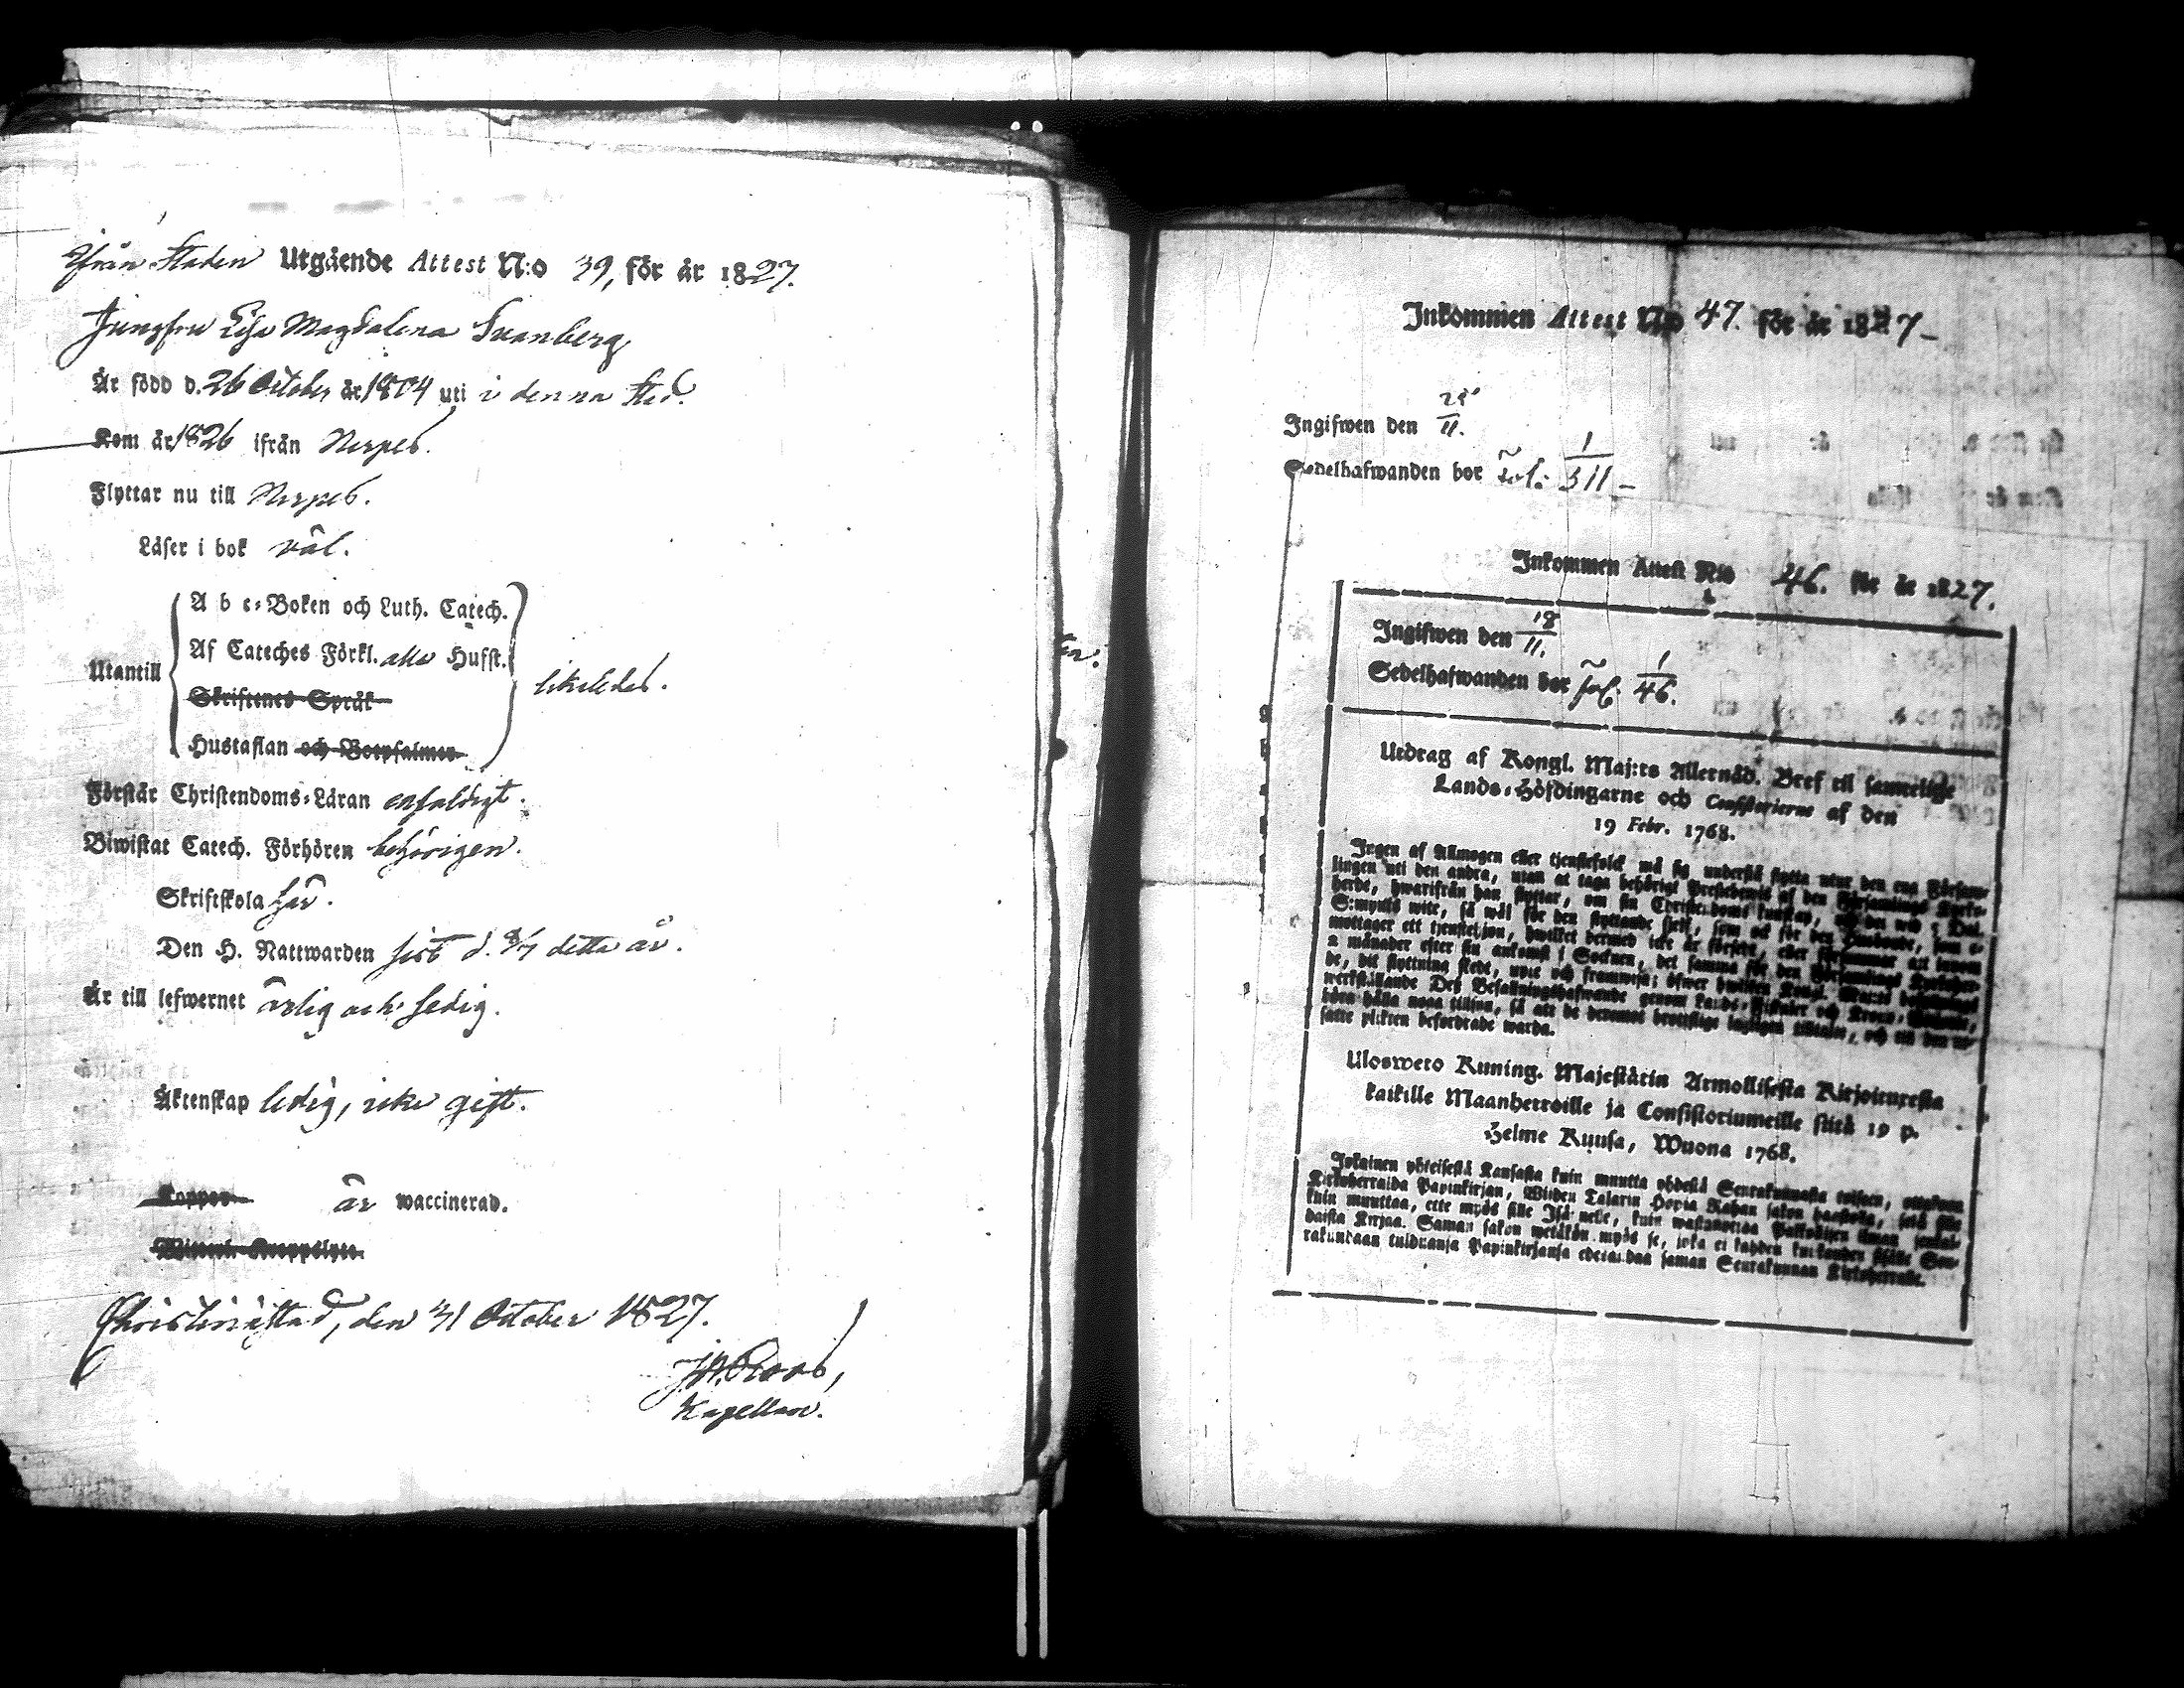 Ifrån Staden Utgående Attest N:o 39, för år 1827.
Jungfru Lisa Magdalena Svanberg
Är född d. 26 October år 1804 uti i denna Stad.
Kom år 1826 ifrån Nerpes.
Flyttar nu till Nerpes.
Läser i bok väl.
A b c-Boken och Luth. Catech.
Af Cateches Förkl. alla Husst.
Utantill
likaledes.
Skriftenes Språk
Hustaflan och Botpsalmer
Förstår Christendoms-Läran enfaldigt.
Biwistat Catech. Förhören behörigen.
Skriftskola här.
Den H. Nattwarden sist d. 8/7 detta år.
Är till lefwernet ärlig och sedig.
Äktenskap ledig, icke gift.
Koppor är waccinerad.
Christinæstad, den 31 October 1827.
Roos,
Kapellan.
Inkommen Attest N:o 47. för år 1827 –
Ingifwen den 25/11.
Sedelhafwanden bor Fol: 1/311 –
Inkommen Attest N:o 46. för år 1827.
Ingifwen den 18/11.
Sedelhafwanden bor Fol. 1/46.
Utdrag af Kongl. Maj:ts Allernåd. Bref til samtelige
Lands-Höfdingarne och Consistorierne af den
19 Febr. 1768.
Ingen af Allmogen eller tjenstefolck må sig understå flytta utur den ena Försam-
lingen uti den andra, utan at taga behörigt Prestebewis af den Församlings Kyrko-
herde, hwarifrån han flyttar, om sin Christendoms kunskap, wid 5 Dal.
S:mynts wite, så wäl för den flyttande sielf, som ock för den Husbonde, som e-
mottager ett tjenstehjon, hwilket dermed icke är försedt, eller försummar att innom
2 månader efter sin ankomst i Socknen, det samma för den Församlings Kyrkoher-
de, dit flyttning skedt, upte och framwisa; öfwer hwilken Kongl. Maj:ts befallnings
werkställande Des Befallningshafwande genom Lands-Fiskaler och Krono-Betiente,
böra hålla noga tillsyn, så att de deremot brottslige lagligen tilltalas, och till den ut-
satte plikten befordrade warda.
Ulosweto Kuning. Majestätin Armollisesta Kirjoituxesta
kaikille Maanherroille ja Consistoriumeille siitä 19 p.
Helme Kuusa, Wuona 1768.
Jokainen yhteisestä Kansasta kuin muutta yhdestä Seurakunnasta toiseen, ottakoon
Kirkoherralda Papinkirjan, Wiiden Talarin Hopia Rahan sakon haastolla, sekä sille
kuin muuttaa, ette myös sille Isännelle, kuin wastanottaa Palkollisen ilman
daista Kirjaa. Saman sakon wetäkön myös se, joka ei kahden kuukauden sisälle Seu-
rakundaan tulduansa Papinkirjansa edestuo saman Seurakunnan Kirkoherralle.